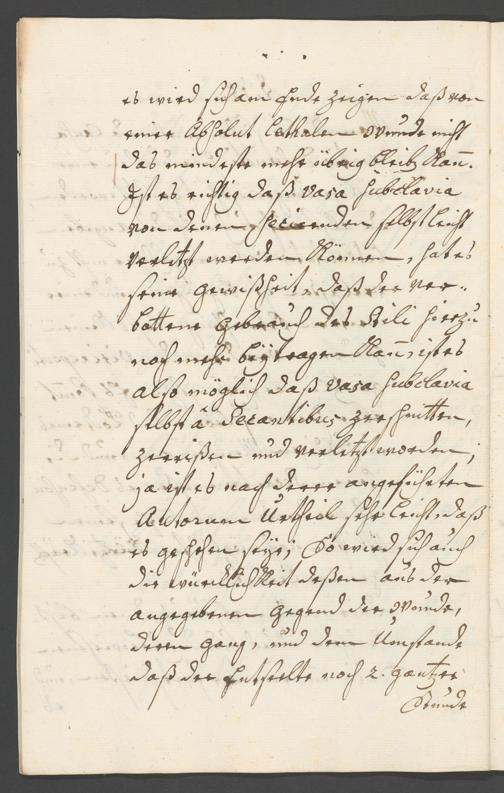 es wird sich am Ende zeigen daß von
einer Absolut lethalen Wunde nicht
das mindeste mehr übrig bleib̄ Kan̄.
Ist es richtig daß Vasa Subclavia
von denen Secirenden selbst leicht
verletzt werden Können, hat es
seine Gewißheit, daß der ver-
bottene Gebrauch des Stili hierzu
noch mehr beÿtragen Kan̄, ist es
also möglich daß Vasa Subclavia
selbst â Secantibus zerschnitten,
zerrißen und verletzt worden,
ja ist es nach derer angeführten
Autorum Urtheil sehr leicht, daß
es geschehen seÿe; So wird sich auch
die würcklichkeit deßen aus der
angegebenen Gegend der Wunde,
deren Gang, und dem Umstande
daß der Entseelte noch 2. gantzer
Stunde